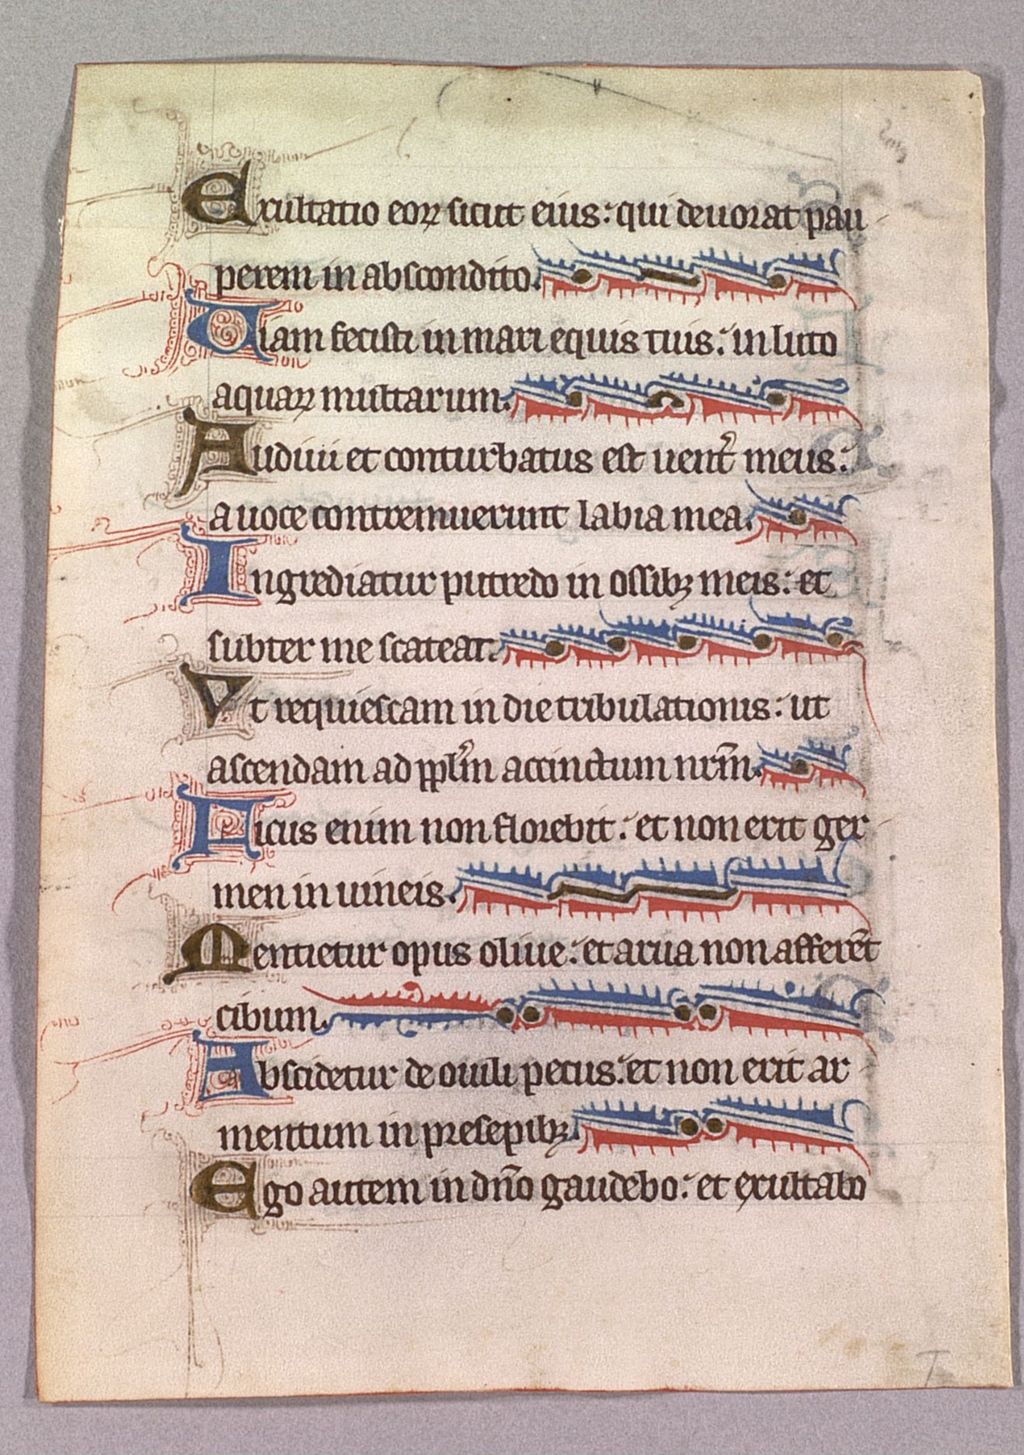 Exultatio eoꝝ sicut eius: qui deuorat pau
perem in abscondito.
Uiam fecisti in mari equis tuis: in luto
aquaꝝ multarum.
Audiui et conturbatus est uent᷑ meus:
a uoce contremuerunt labia mea.
Ingrediatur putredo in ossibꝫ meis: et
subter me scateat.
Vt requiescam in die tribulationis: ut
ascendam ad pplm̄ accinctum nrm̄.
Ficus enim non florebit: et non erit ger
men in uineis.
Mentietur opus oliue: et arua non afferēt
cibum.
Abscidetur de ouili pecus: et non erit ar
mentum in presepibꝫ.
Ego autem in dn̄o gaudebo: et exultabo